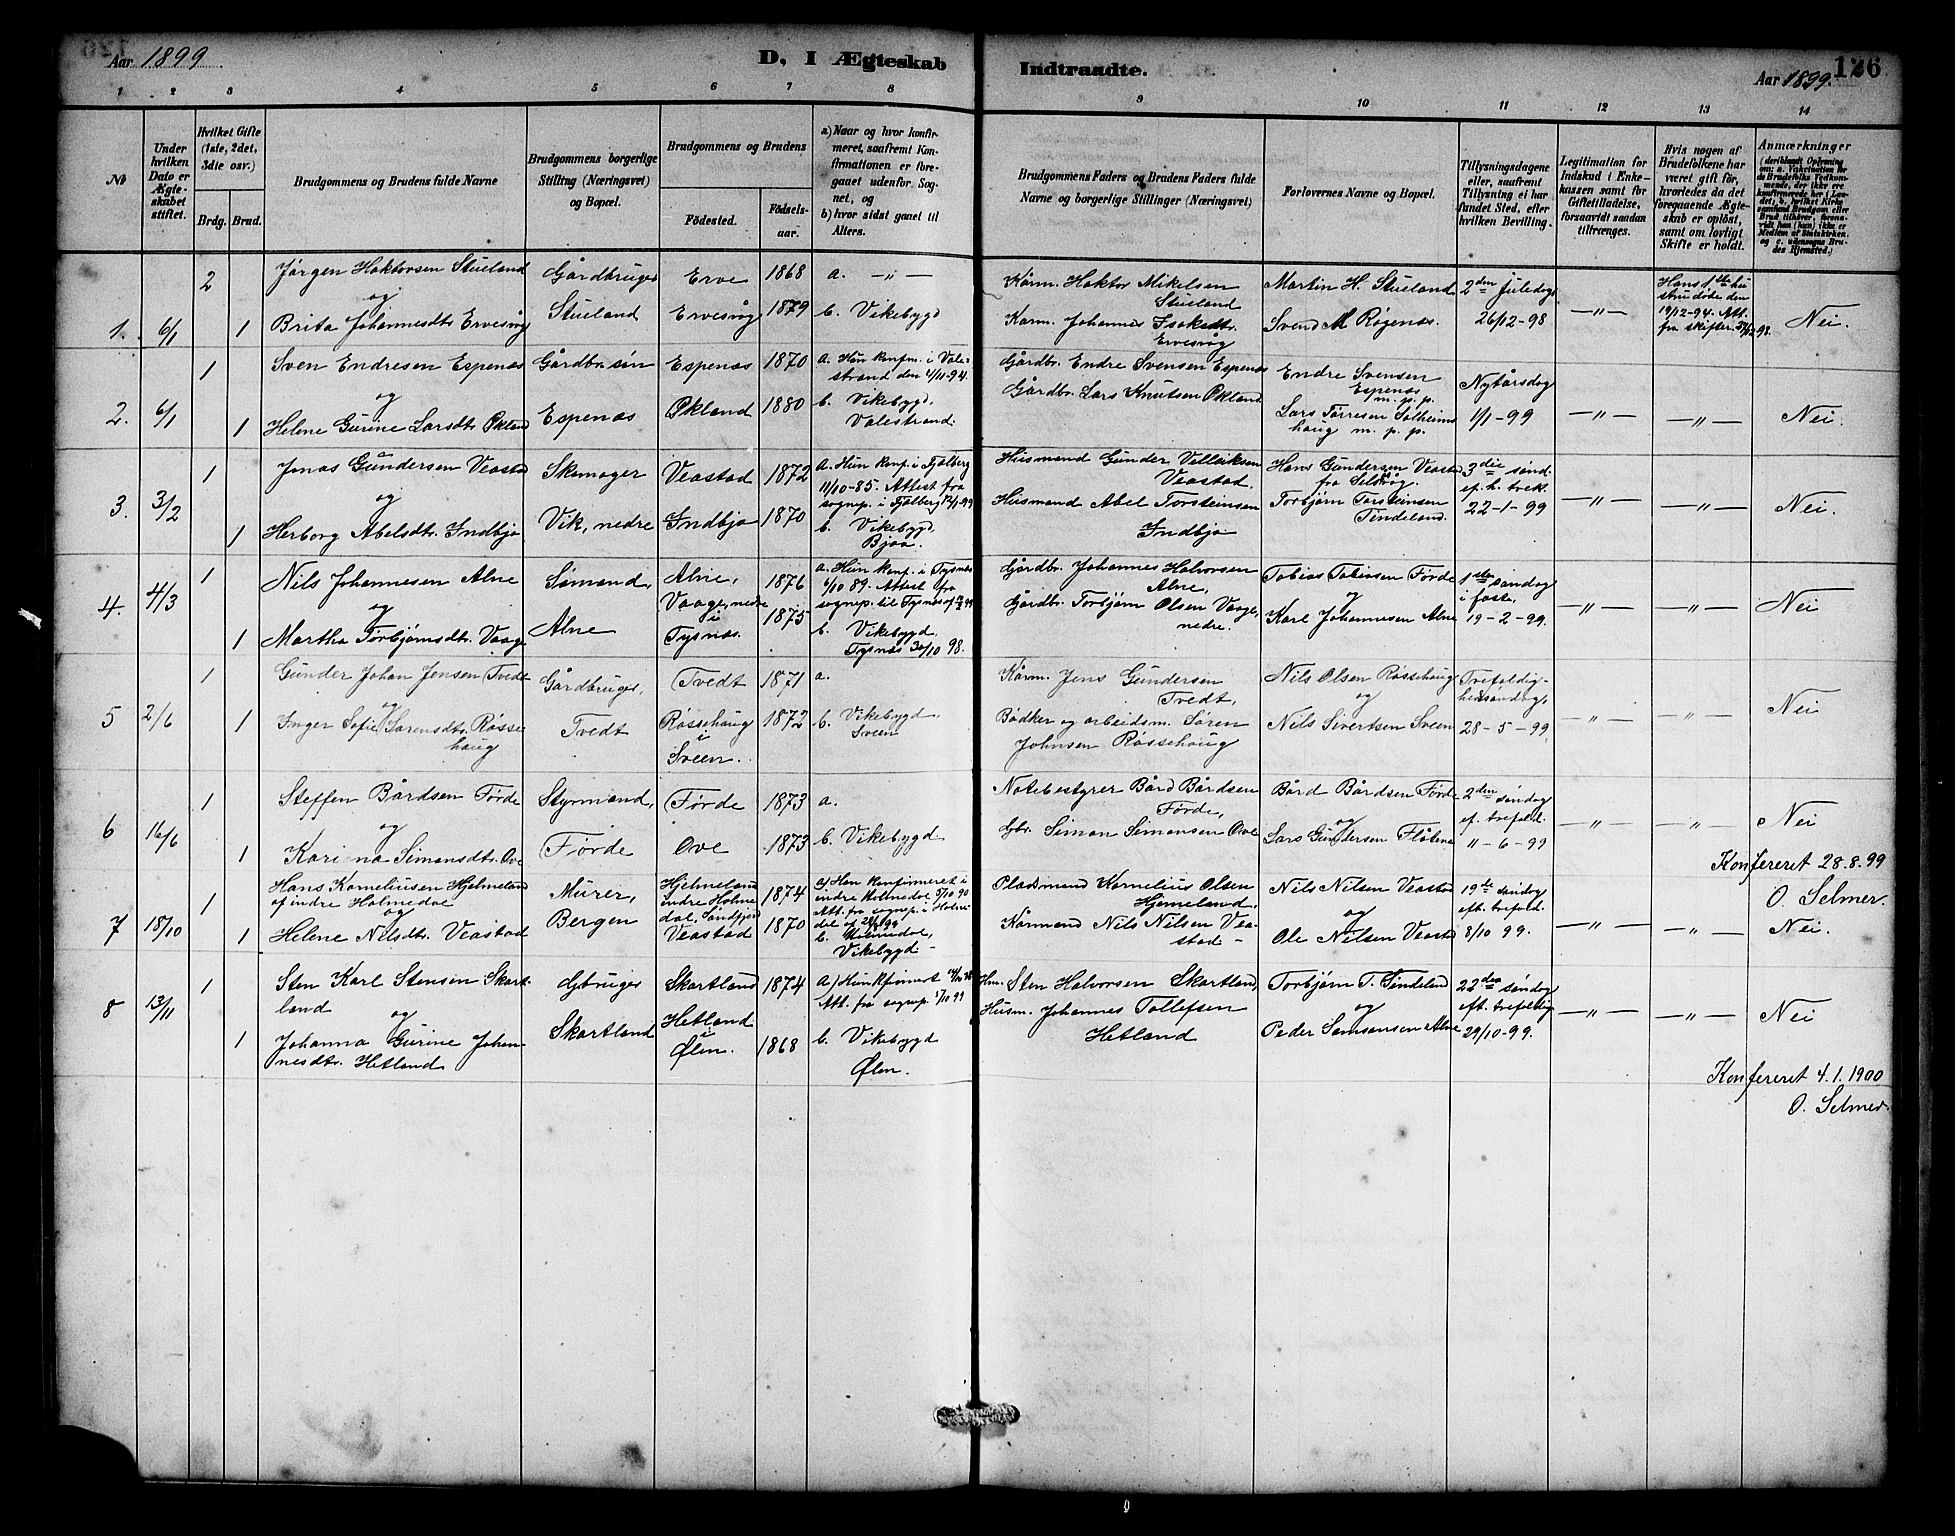 Aar 1899
D, I Ægteskab
Indtraadte.
126
Aar 1899.
1 2 3 4 5 6 7 8 9 10 11 12 13 14
№
Under hvilken Dato er Ægteskabet stiftet.
Hvilket Gifte (1ste, 2det, 3die osv.)
Brdg. Brud.
Brudgommens og Brudens fulde Navne
Brudgommens borgerlige Stilling (Næringsvei) og Bopæl.
Brudgommens og Brudens
Fødested.
Fødselsaar.
a) Naar og hvor konfirmeret, saafremt Konfirmationen er foregaaet udenfor Sognet, og
b) hvor sidst gaaet til Alters.
Brudgommens Faders og Brudens Faders fulde Navne og borgerlige Stillinger (Næringsvei)
Forlovernes Navne og Bopæl.
Tillysningsdagene eller, saafremt Tillysning ei har fundet Sted, efter hvilken Bevilling.
Legitimation for Indskud i Enkekassen samt for Giftetilladelse, forsaavidt saadan tiltrænges.
Hvis nogen af Brudefolkene har været gift før, hvorledes da det foregaaende Ægteskab er opløst, samt om lovligt Skifte er holdt.
Anmærkninger
1. 6/1 2 1
Jørgen Haktorsen Stueland
og
Brita Johannesdt. Ervesvåg
Gårdbruger
Stueland
Erve 1868
Ervesvåg 1879
a. — " —
b. Vikebygd
Kårm. Haktor Mikelsen
Stueland
Karm. Johannes Isaksdt.
Ervesvåg
Martin H. Stueland
Svend M Røgenæs.
2den Juledag
26/12-98
— " —
Hans 1ste hustru døde den
19/12-94. Att.
fra skifter.
Nei.
2. 6/1 1 1
Sven Endresen Espenæs
og
Helene Gurine Larsdt. Økland
Gårdbr. søn
Espenæs
Espenæs 1870
Økland 1880
a. Hun konfm. i Valestrand den 4/11-94.
b. Vikebygd.
Valestrand.
Gårdbr. Endre Svensen Espenæs
Gårdbr. Lars Knutsen Økland
Endre Svensen
Espenæs
m. p. p.
Lars Tørresen Solheimshaug m. p. p.
Nytårsdag
1/1-99
— " —
— " —
Nei.
3. 3/2 1 1
Jonas Gundersen Veastad
og
Herborg Abelsdt. Indbjo
Skomager
Vik, nedre
Veastad 1872
Indbjo 1870
a. Hun konf. i Fjelberg
11/10-85. Attest fra
sognep. i Fjelberg
b. Vikebygd,
Bjoa.
Husmand Gunder Velleiksen
Veastad.
Husmand Abel Torsteinsen
Indbjo
Hans Gundersen Veastad
fra Selvåg.
Torbjørn Torsteinsen
Tindeland.
3die sønd.
ef. h. trek.
22-1-99
— " —
— " —
Nei.
4. 4/3 1 1
Nils Johannesen Alne
og
Martha Torbjørnsdt. Vaage
Sømand,
Alne
Alne, 1876
Vaage, nedre
i
Tysnæs. 1875
a. Hun konf. i Tysnæs
6/10 89. Attest fra
sognep. til Tysnæs
b. Vikebygd.
Tysnæs 30/10 98.
Gårdbr. Johannes Halvorsen
Alne,
Gårdbr. Torbjørn Olsen Vaage,
nedre.
Tobias Tobiasen Førde
og
Karl Johannesen Alne
1ste søndag
i faste,
19-2-99.
— " —
— " —
Nei
5 2/6 1 1
Gunder Johan Jensen Tvedt
og
Inger Sofie Sørensdt. Røssehaug
Gårdbruger,
Tvedt
Tvedt 1871
Røssehaug
i
Sveen. 1872
a.
b. Vikebygd.
Sveen
Kårm. Jens Gundersen
Tvedt,
Bødker og arbeidsm. Søren
Johnsen Røssehaug
Nils Olsen Røssehaug
og
Nils Sivertsen Sveen
Trefoldighedsøndag,
28-5-99
— " —
— " —
Nei
6 16/6 1 1
Steffen Bårdsen Førde
og
Karina Simonsdt. Ove
Styrmand,
Førde
Førde 1873
Ove 1873
a.
b. Vikebygd
Notebestyrer Bård Bårdsen
Førde,
Gbr. Simon Simonsen Ove
Bård Bårdsen Førde
og
Lars Gundersen Flåtene
2den søndag
ef. trefold.
11-6-99
— " —
— " —
Nei
Konfereret 28.8.99
O. Selmer.
7 18/10 1 1
Hans Korneliusen Hjelmeland
af indre Holmedal
og
Helene Nilsdt. Veastad
Murer,
Bergen
Hjelmeland
indre Holmedal, Søndfjord 1874
Veastad 1870
a) Han konfirmeret i
indre Holmedal 5/10 90
Att. fra sognep. i Holmedal
b. Holmedal,
Vikebygd -
Pladsmand Kornelius Olsen
Hjemeland,
Kårmand Nils Nilsen Veastad -
Nils Nilsen Veastad
og
Ole Nilsen Veastad
19de søndag
eft. trefold.
8/10 99.
— " —
— " —
Nei.
8 13/11 1 1
Sten Karl Stensen Skartland
og
Johanna Gurine Johannesdt. Hetland
Gbruger
Skartland
Skartland 1874
Hetland
i
Ølen. 1868
a) Hun kfirmert
Att. fra sognep. 17/10 99
b. Vikebygd
Ølen.
Hm. Sten Halvorsen Skartland,
Husm. Johannes Tollefsen
Hetland
Torbjørn T. Tindeland
og
Peder Samsonsen Alne
22den søndag
eft. trefoldig.
29/10-99.
— " —
— " —
Nei
Konfereret 4.1.1900
O. Selmer.